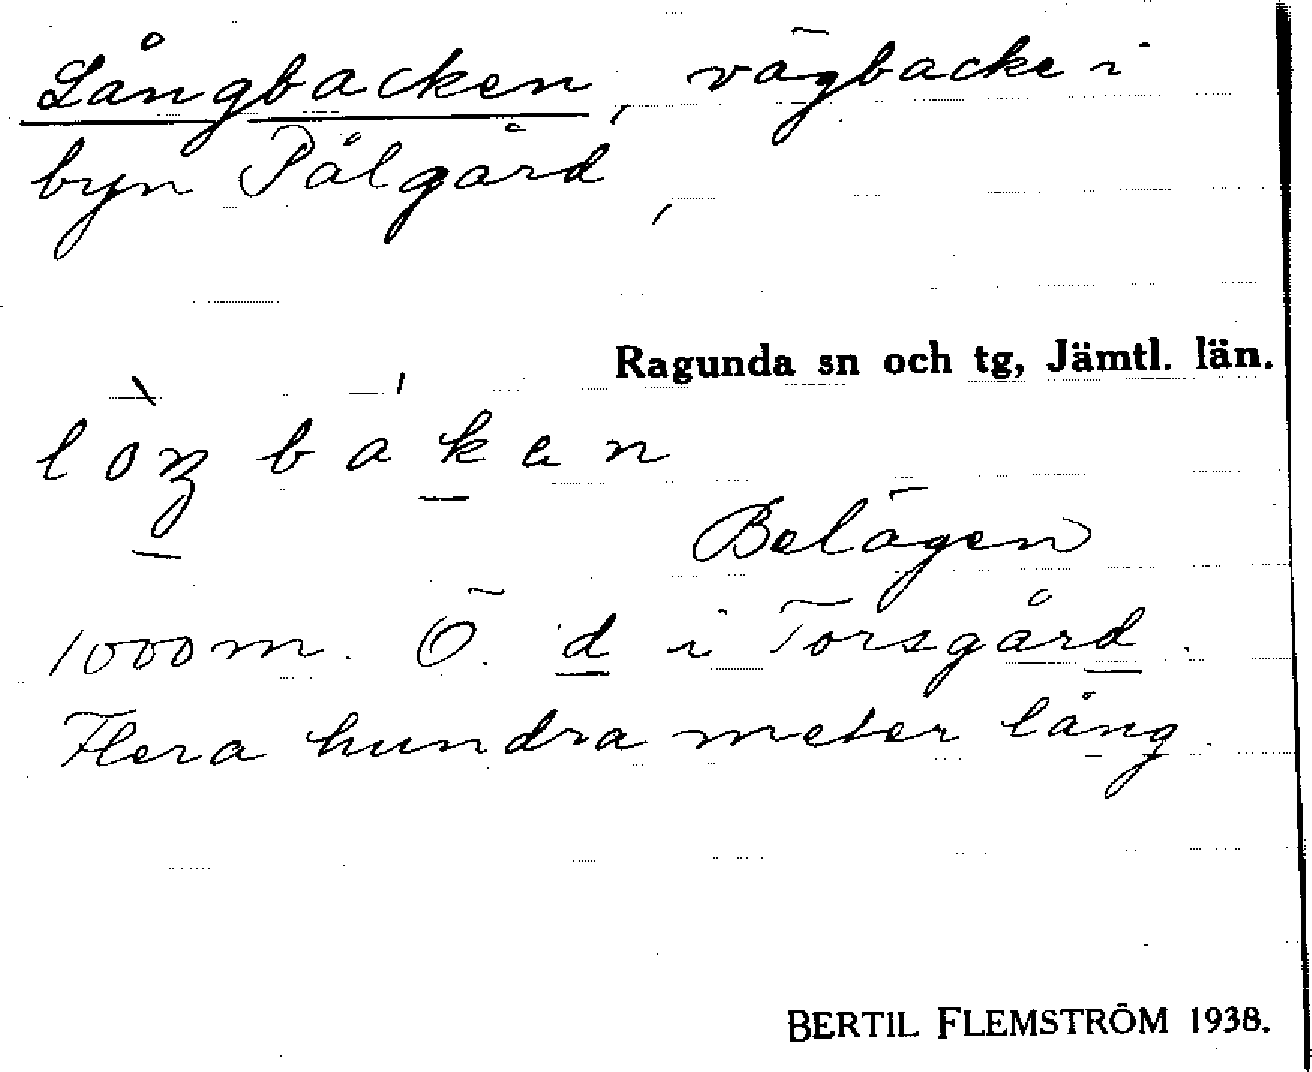 Långbacken, vägbacke i
byn Pålgård,
Ragunda sn och tg, Jämtl. län.
lòŋ báken
Belägen
1000 m. Ö. d i Torsgård.
Flera hundra meter lång.
BERTIL FLEMSTRÖM 1938.